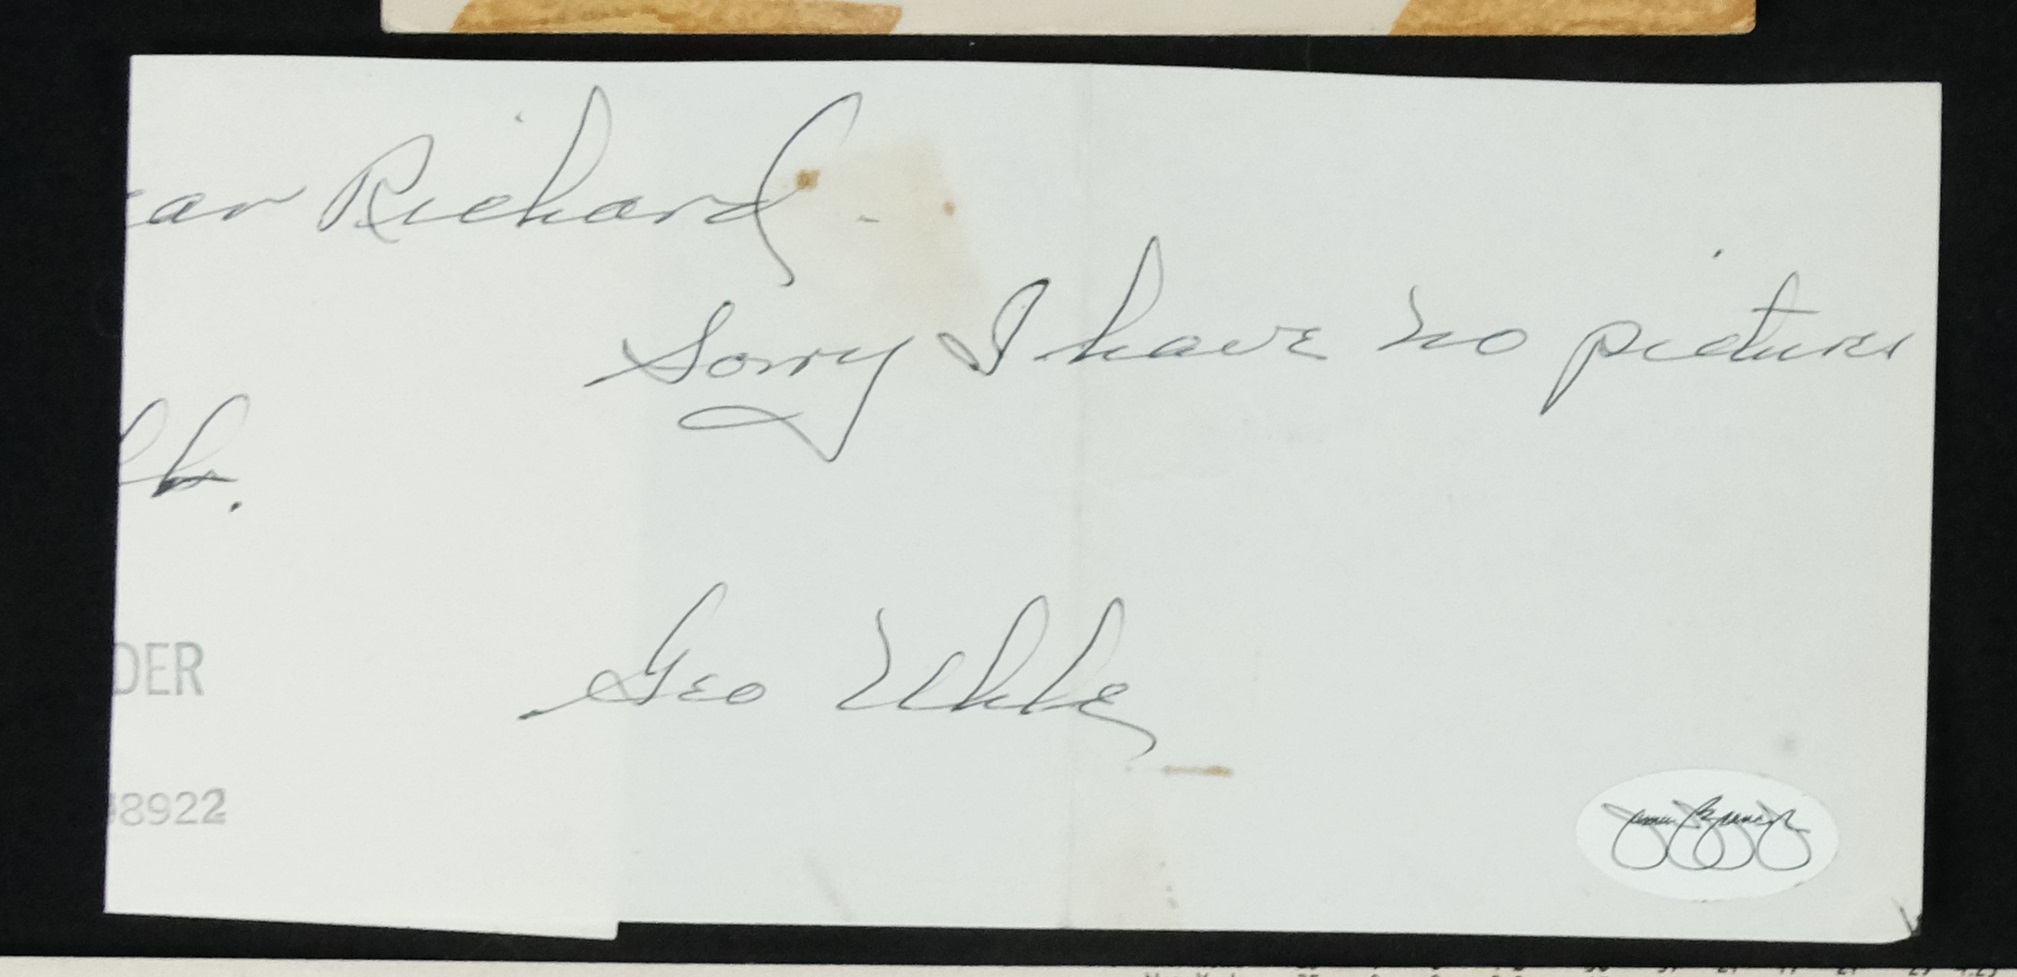 ear Richard -
Sorry I have no pictures
lh.
Geo Uhle
DER
8922